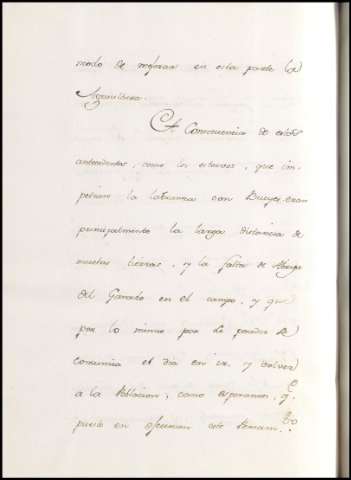 modo de mejorar en esta parte la
Agricultura.
A Consecuencia de estos
antecedentes, como los estorvos, que im-
pedian la labranza con Bueyes, eran
principalmente la larga distancia de
nuestras tierras, y la falta de Abrigo
del Ganado en el campo, y que
por lo mismo por la
consumia el dia en ir, y bolver
a la Poblacion; como esperamos, q.e
puesto en este